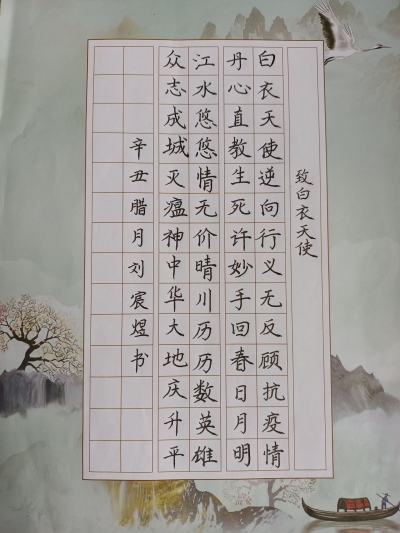 致白衣天使
白衣天使逆向行义无反顾抗疫情
丹心直教生死许妙手回春日月明
江水悠悠情无价晴川历历数英雄
众志成城灭瘟神中华大地庆升平
辛丑腊月刘宸煜书